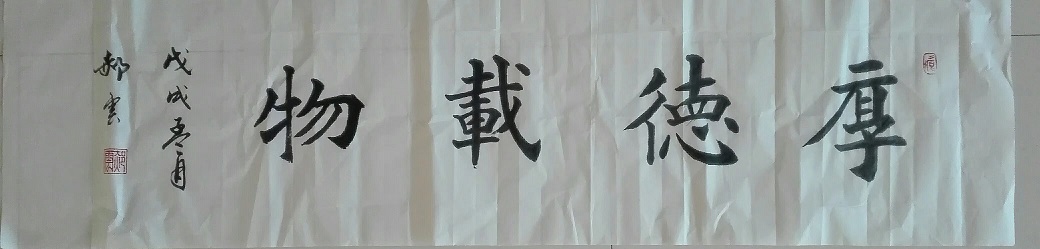 厚德載物
戊戌五月
郝雲